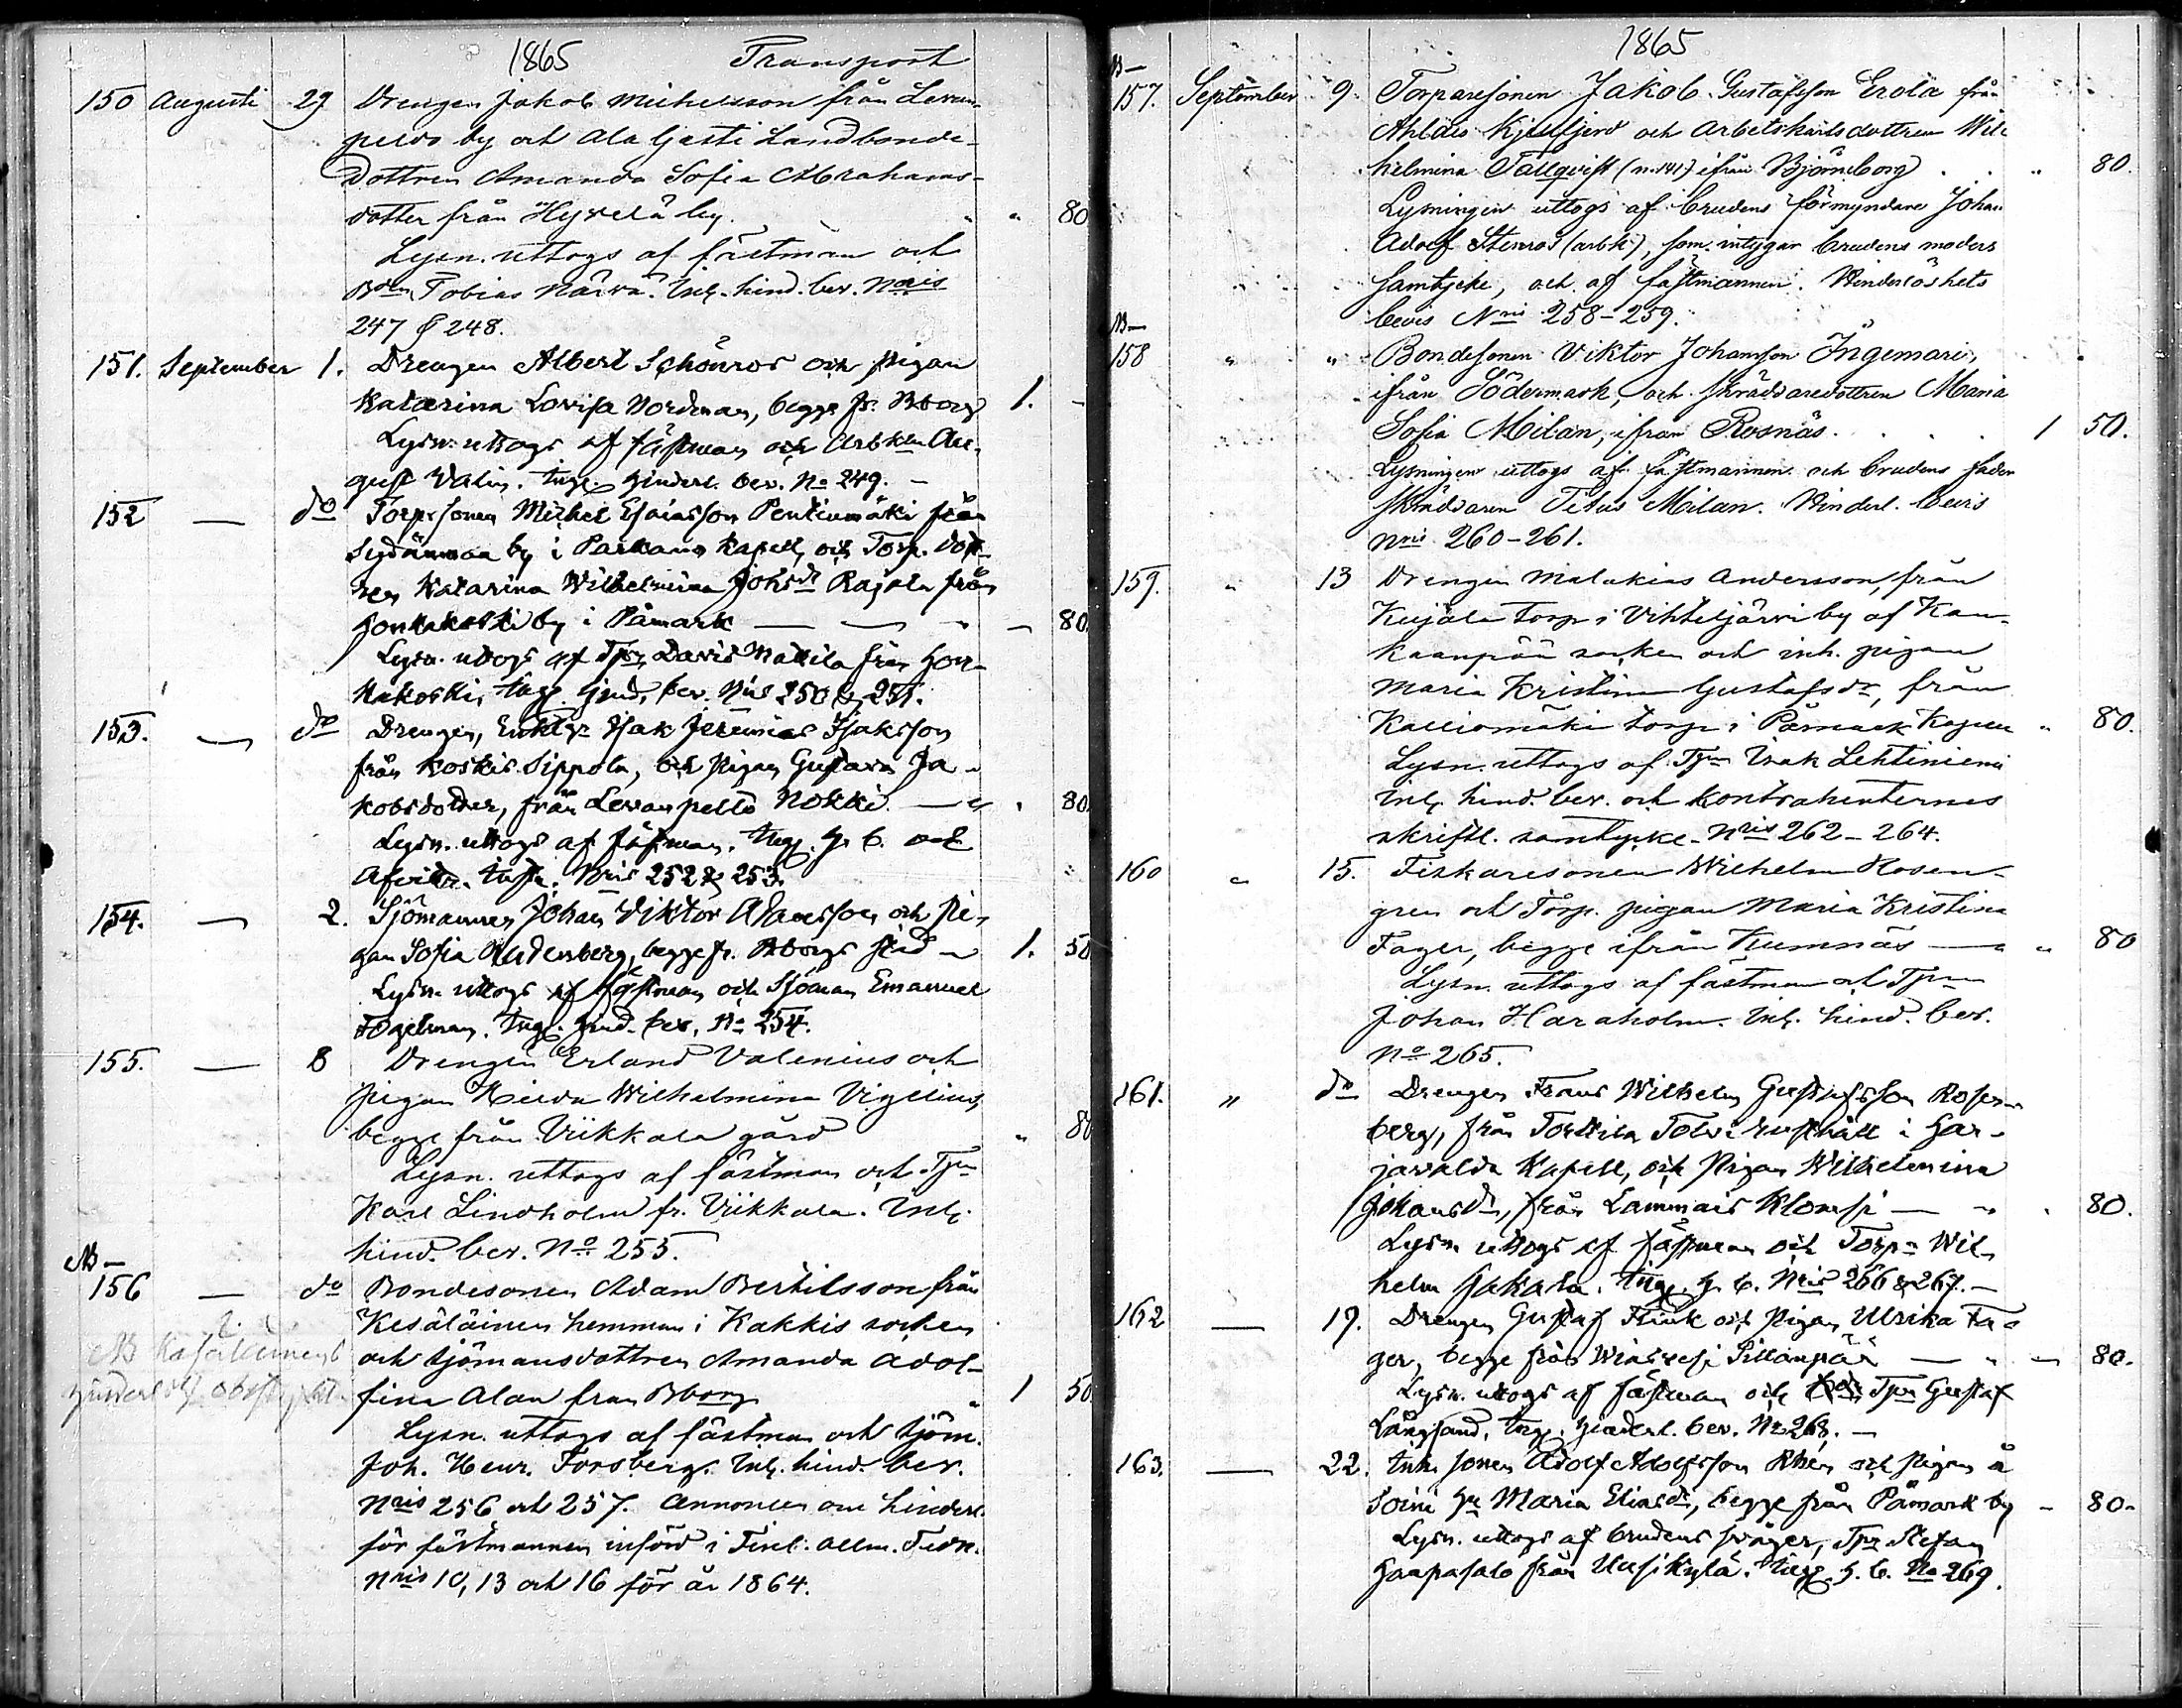 1865 Transport
150 Augusti 29 Drengen Jakob Michelsson från Levan-
pelto by och Ala Gasti Landbonde-
dottren Amanda Sofia Abrahams-
dotter från Hyvelä by. " " 80
Lysn. uttogs af fästman och
Bdn Tobias Närvä. Inl. hind. bev. Nris
247 & 248.
151. September 1. Drengen Albert Schönros och pigan
Katarina Lovisa Nordman, begge fr. Bborg 1. -
Lysn. uttogs af fästman och Arbkln Au-
gust Valin. Ingg. hinderl. bev. No 249. -
152 — do Torp. sonen Michel Esaiasson Pentinmäki från
Sydänmaa by i Parkano Kapell, och Torp. dott-
ren Katarina Wilhelmina Johsdr Rajala från
Honkakoski by i Påmark — — " — 80.
Lysn. uttogs af Tprn David Mattila från Hon-
kakoski, Ingg. hind. bev. Nris 250 & 251.
153. — do Drengen, Enkl. Isak Jeremias Isaksson
från Koskis Sippola, och Pigan Gustava Ja-
kobsdotter, från Levanpelto Nokki — " . 80.
Lysn. uttogs af fästman. Ingg. h. b. och
Afvittr. Nris 252 & 253.
154. — 2. Sjömannen Johan Viktor Adamsson och Pi-
gan Sofia Rudenberg, begge fr. Bborgs stad — 1. 50
Lysn. uttogs af fästman och Sjöman Emanuel
Fogelman. Ingg. hind. bev. No 254.
155. — 8 Drengen Erland Valenius och
Pigan Wilhelmina Vigelius,
begge från Viikkala gård " 80
Lysn. uttogs af fästman och Tprn
Karl Lindholm fr. Viikkala. Inl.
hind. bev. No 255.
NB —
156 — do Bondesonen Adam Bertilsson från
Kesäläinen hemman i Kakkis socken
och Sjömansdottren Amanda Adol-
fina Alan från Bborg " 1 50.
NB
Lysn. uttogs af fästman och Sjöm.
Joh. Henr. Forsberg. Inl. hind. bev.
Nris 256 och 257. Annoncen om hinderl.
för fästmannen införd i Finl. Allm. Tidn.
Nris 10, 13 och 16 för år 1864.
1865
NB —
157. September 9. Torparesonen Jakob Gustafsson Erola från
Ahlais Kjellfjerd och Arbetskarlsdottren Wil-
helmina Tallqvist (n. 141) ifrån Björneborg . . " 80.
Lysningen uttogs af brudens förmyndare Johan
Adolf Stenros (arbk.), som intygar brudens moders
samtycke, och af fästmannen. Hinderlöshets
bevis Nris 258-259.
NB —
158 " " Bondesonen Viktor Johansson Ingemari,
ifrån Södermark, och Skräddaredottren Maria
Sofia Milan, ifrån Rosnäs. . . . 1 50.
Lysningen uttogs af fästmannen och brudens fader
Skräddaren Titus Milan. Hinderl. bevis
Nris 260-261.
159. " 13 Drengen Malakias Andersson, från
Kujala torp i Vihteljärvi by af Kan-
kaanpää socken och inh. pigan
Maria Kristina Gustafsdr, från
Kalliomäki torp i Påmark Kapell " 80.
Lysn. uttogs af Tprn Isak Lehtiniemi
Inl. hind. bev. och kontrahenternes
skriftl. samtycke. Nris 262-264.
160 " 15. Fiskaresonen Wilhelm Rosen-
gren och Torp. pigan Maria Kristina
Fager, begge ifrån Kumnäs — " " 80
Lysn. uttogs af fästman och Tprn
Johan Haraholm. Inl. hind. bev.
No 265.
161. " do Drengen Frans Wilhelm Gustafsson Rosen-
berg, från Torttila Tolvi rusthåll i Har-
javalda Kapell, och Pigan Wilhelmina
Johansdr, från Lammais Klomsi — " . 80.
Lysn. uttogs af fästman och Torp. Wil-
helm Jakala. Ingg. h. b. Nris 266 & 267. —
162 — 17. Drengen Gustaf Flink och Pigan Ulrika Fa-
ger, begge från Wiasvesi Sillanpää — " — 80.
Lysn. uttogs af fästman och Tprn Gustaf
Långsand. Ingg. hinderl. bev. No 268. —
163. — 22. Inh. sonen Adolf Adolfsson Rhen och Pigan å
Soini Maria Eliasdr, begge från Påmark by — 80.
Lysn. uttogs af brudens svåger, Tprn Stefan
Haapasalo från Uusikylä. Ingg. h. b. No 269.